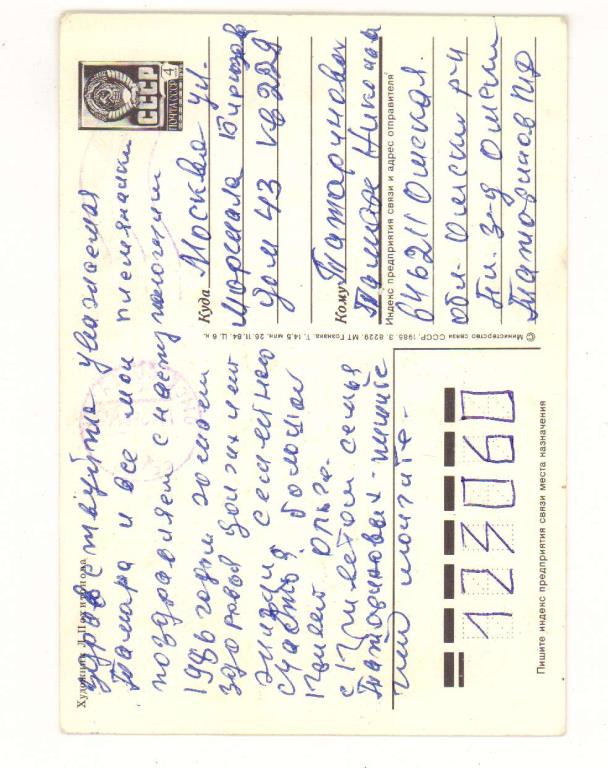 Художник Л. Похитонова
СССР
ПОЧТА СССР 4
здравствуйте уважаемая
Тамара и все мои племяники
поздравляем с наступающим
1986 годом желаем
здоровья долгих лет
жизни семейного
счастья большой
привет Ольге.
с Приветом семья
Татариновых - пишите
молчите -
Куда Москва ул.
Маршала Бирюзова
дом 43 кв 229
Кому Татариновой
Тамаре Николаев
Индекс предприятия связи и адрес отправителя
646211 Омская
обл. Омский р-н
п. з-д Омский
Татаринов ПФ
© Министерство связи СССР, 1985. З. 8229. МТ Гознака. Т. 14,5 млн. 26.11.84. Ц. 6 к.
123060
Пишите индекс предприятия связи места назначения